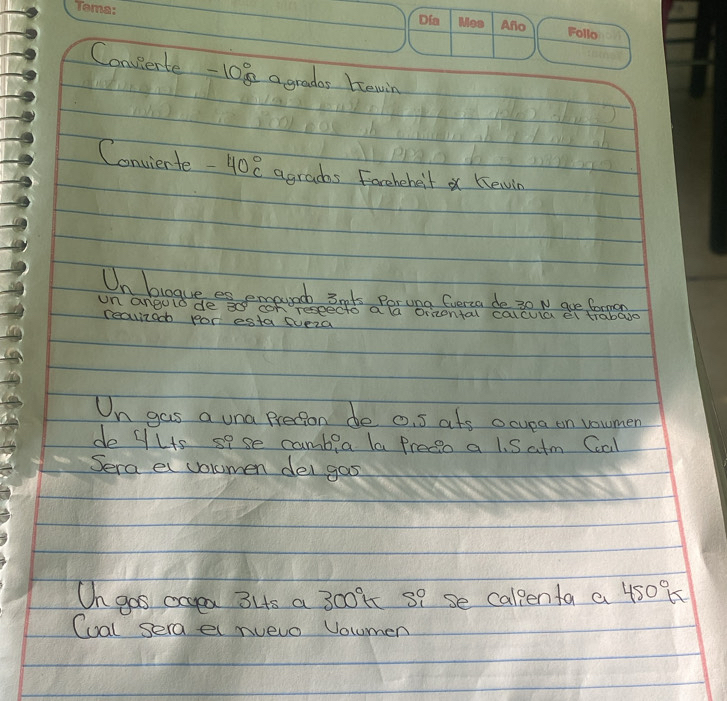 Tema:
Día Mes Año Folio
Convierte -10°c a grados kewin
Convierte -40°c agrados Fareheheit x Kewin
Un bloque es empujado 3mts Por una fuerza de 30 N que forman
un angulo de 30° con respecto a la orizontal calcula el trabajo
realizado por esta fuerza
Un gas a una Precion de 0.5 ats ocupa un volumen
de 4 Lts si se cambia la Precio a 1.5 atm Cual
Sera el volumen del gas
Un gas ocupa 3Lts a 300°k si se calienta a 450°k
Cual sera el nuevo Volumen